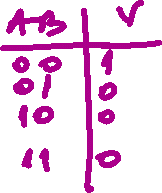 A B V
0 0 1
0 1 0
1 0 0
1 1 0